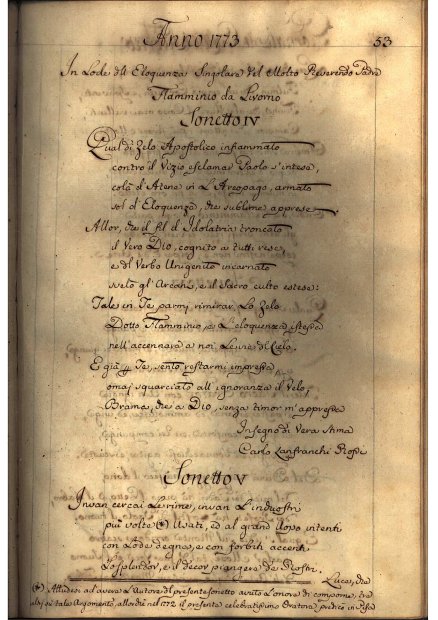 Anno 1773
53
In Lode dell Eloquenza Singolare del Molto Reverendo Padre
Flamminio da Livorno
Sonetto IV
Qual di Zelo Apostolico infiammato
contro il Vizio esclamar Paolo s'intese,
colà d'Atene in L'Areopago, armato
sol d'Eloquenza, che sublime apprese
Allor, che il fil d'Idolatria troncato
il Vero Dio, cognito a tutti rese,
e del Verbo Unigenito incarnato
svelò gl'Arcani, e il Sacro culto estese:
Tale in Te parmi rimirar Lo Zelo
Dotto Flamminio e L'eloquenza istessa
nell'accennare a noi Le vie del Cielo.
E già Te, sento restarmi impressa
omai squarciato all'ignoranza il Velo,
Brama, che a Dio, senza timor m'appressa
In segno di Vera Stima
Carlo Lanfranchi
Sonetto V
Invan cercai Le rime, invan L'industri
più volte (*) Usati, ed al grand'Uopo intenti
con Lode degna, e con forbiti accenti
Lo Splendor, e il decor pianger de
Luca, che
(*) Alludesi ad avere L'Autore del presente Sonetto avuto L'onore di comporre, tra
su tale Argomento, allorchè nel 1772 il presente celebratissimo Oratore, predicò in Pisa